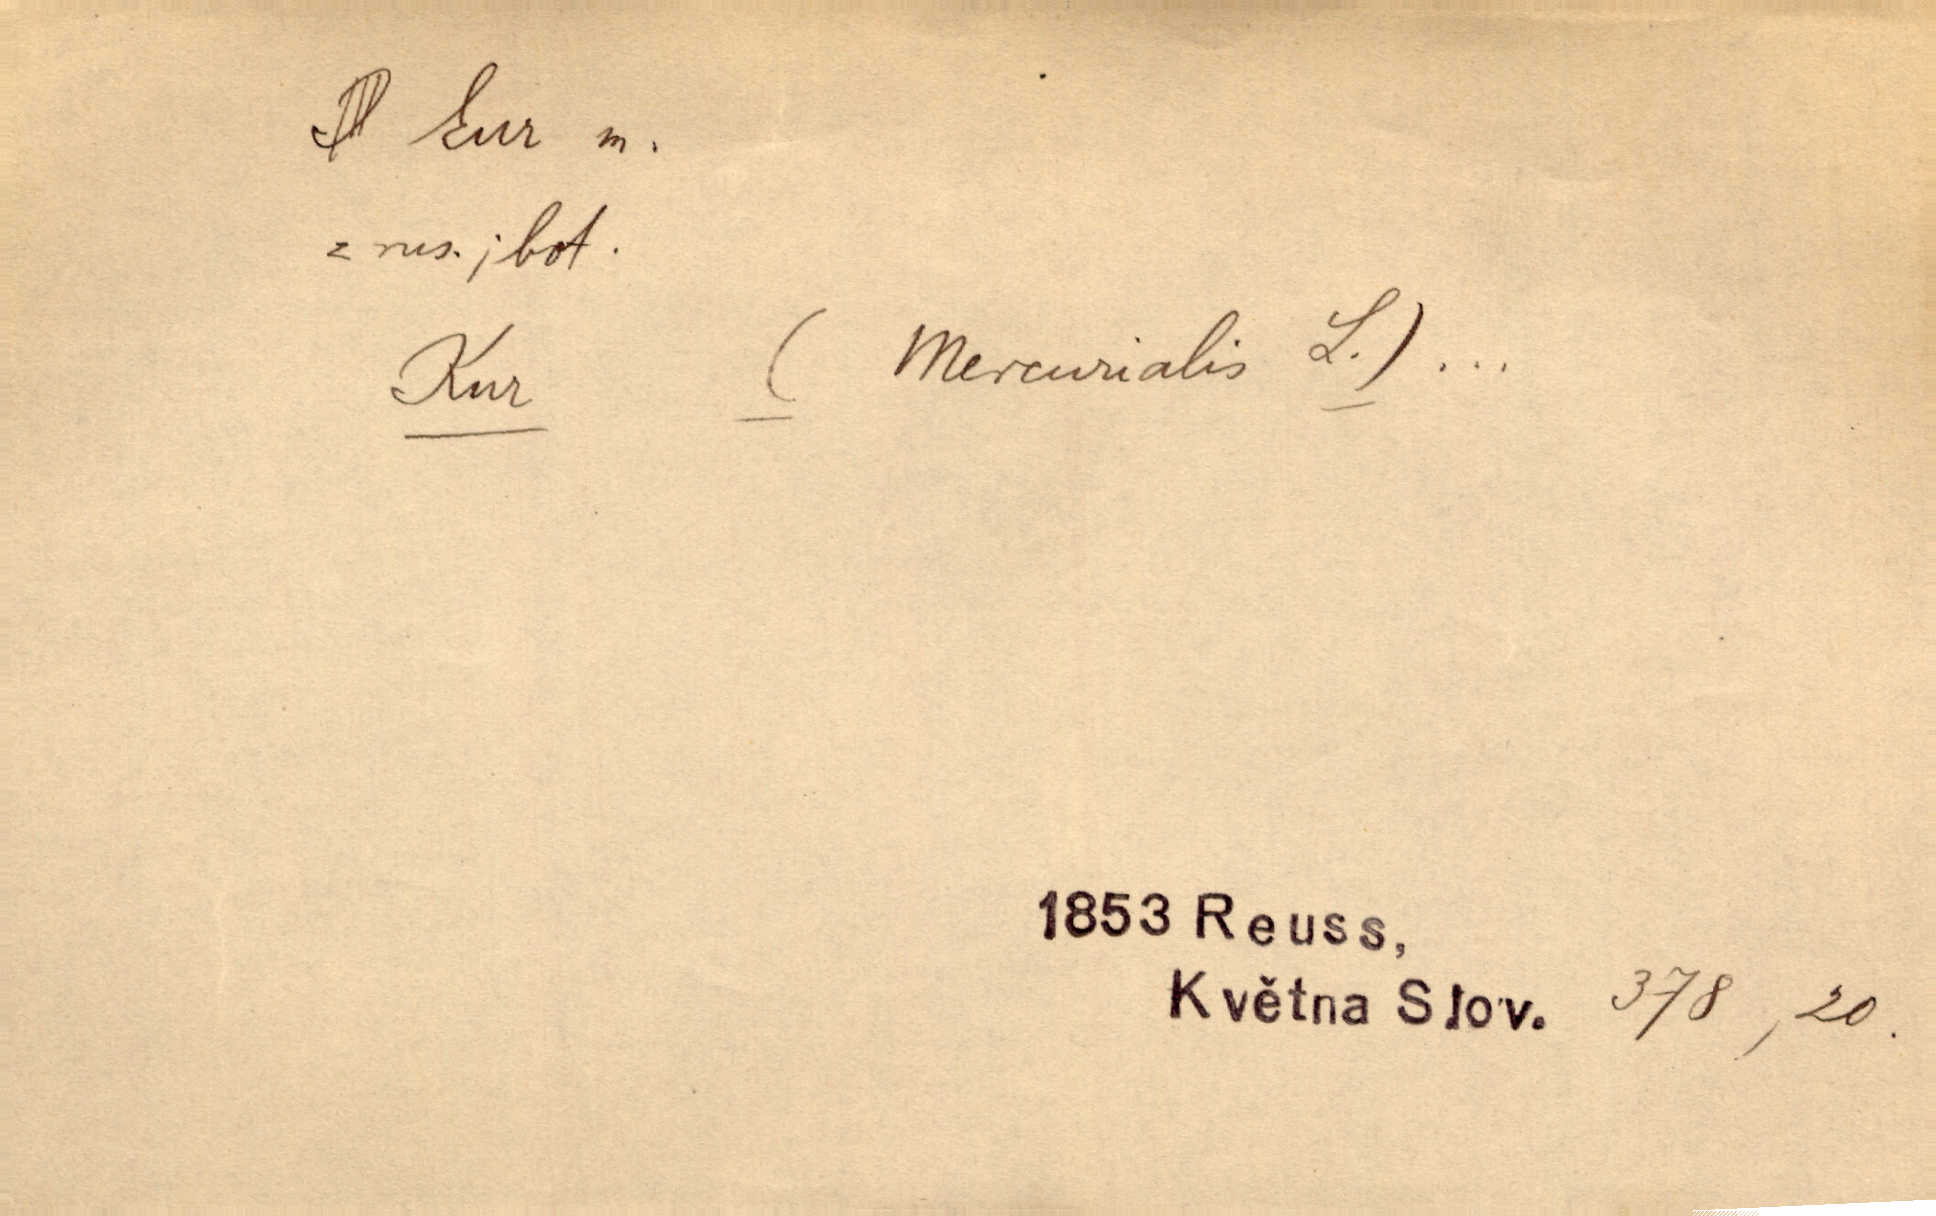 kur m.
z rus.; bot.
Kur ( Mercurialis L.) ...
1853 Reuss,
Května Slov. 378, 20.